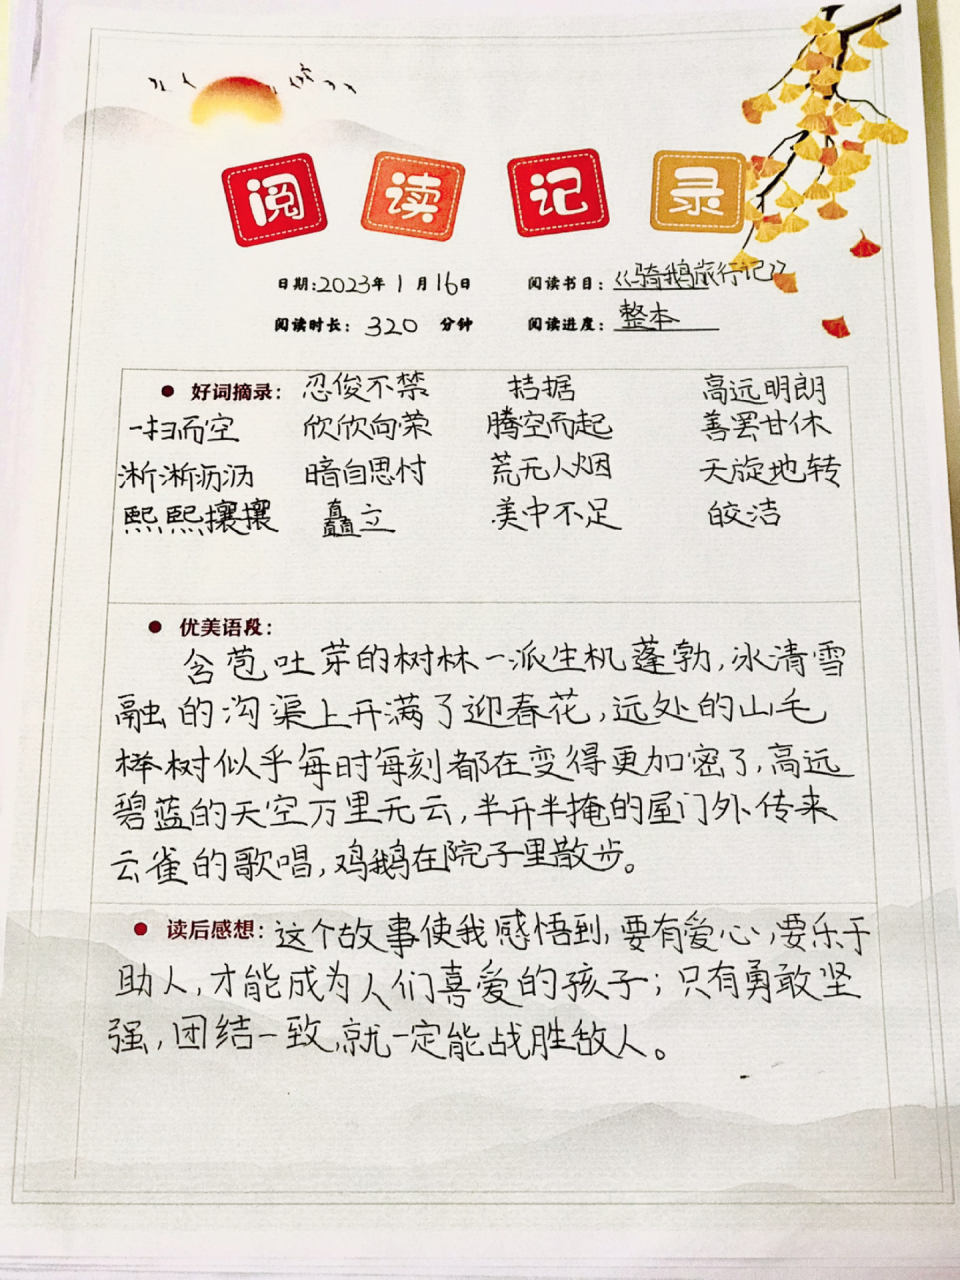 阅读记录
日期:2023年1月16日 阅读书目:《骑鹅旅行记》
阅读时长:320分钟 阅读进度:整本
● 好词摘录: 忍俊不禁 拮据 高远明朗
一扫而空 欣欣向荣 腾空而起 善罢甘休
淅淅沥沥 暗自思忖 荒无人烟 天旋地转
熙熙攘攘 矗立 美中不足 皎洁
● 优美语段:
含苞吐芽的树林一派生机蓬勃,冰清雪
融的沟渠上开满了迎春花,远处的山毛
榉树似乎每时每刻都在变得更加密了,高远
碧蓝的天空万里无云,半开半掩的屋门外传来
云雀的歌唱,鸡鹅在院子里散步。
● 读后感想:这个故事使我感悟到,要有爱心,要乐于
助人,才能成为人们喜爱的孩子;只有勇敢坚
强,团结一致,就一定能战胜敌人。